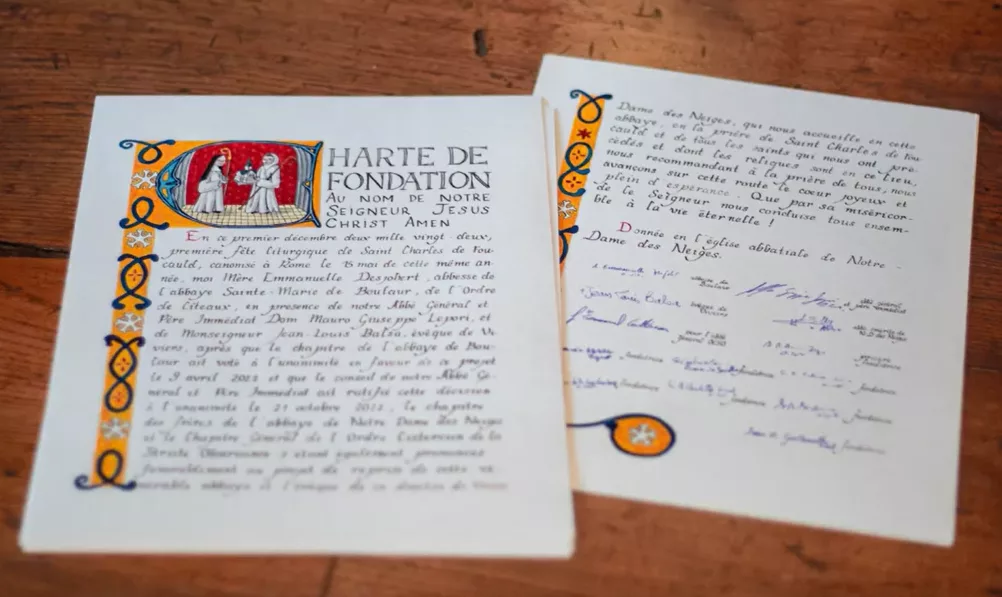 CHARTE DE
FONDATION
AU NOM DE NOTRE
SEIGNEUR JESUS
CHRIST AMEN
En ce premier decembre deux mille vingt-deux,
première fête liturgique de Saint Charles de Fou-
cauld, canonisé à Rome le 15 mai de cette même an-
née, moi Mère Emmanuelle Desjobert, abbesse de
l'abbaye Sainte-Marie de Boulaur, de l'Ordre
de Cîteaux, en présence de notre Abbé Général et
Père Immédiat Dom Mauro Giuseppe Lepori, et
de Monseigneur Jean-Louis Balsa, évêque de Vi-
viers, après que le chapitre de l'abbaye de Bou-
laur ait voté à l'unanimité en faveur de ce projet
le 9 avril et que le conseil de notre Abbé Gé-
néral et Père Immédiat ait ratifié cette décision
à l'unanimité le 21 octobre, le chapitre
des frères de l'abbaye de Notre Dame des Neiges
et le Chapitre Général de l'Ordre Cistercien de la
Stricte Observance s'étant également prononcés
favorablement au projet de reprise de cette vé-
nérable abbaye
Dame des Neiges, qui nous accueille en cette
abbaye, en la prière de Saint Charles de Fou-
cauld et de tous les saints qui nous ont pré-
cédés et dont les reliques sont en ce lieu,
nous recommandant à la prière de tous, nous
avançons sur cette route le cœur joyeux et
plein d'espérance. Que par sa miséricor-
de le Seigneur nous conduise tous ensem-
ble à la vie éternelle !
Donnée en l'église abbatiale de Notre-
Dame des Neiges.
abbesse de
Boulaur
abbé général
et père immédiat
évêque de
Viviers
pour l'abbé
général
fondatrice
fondatrice
fondatrice
fondatrice
fondatrice
fondatrice
fondatrice